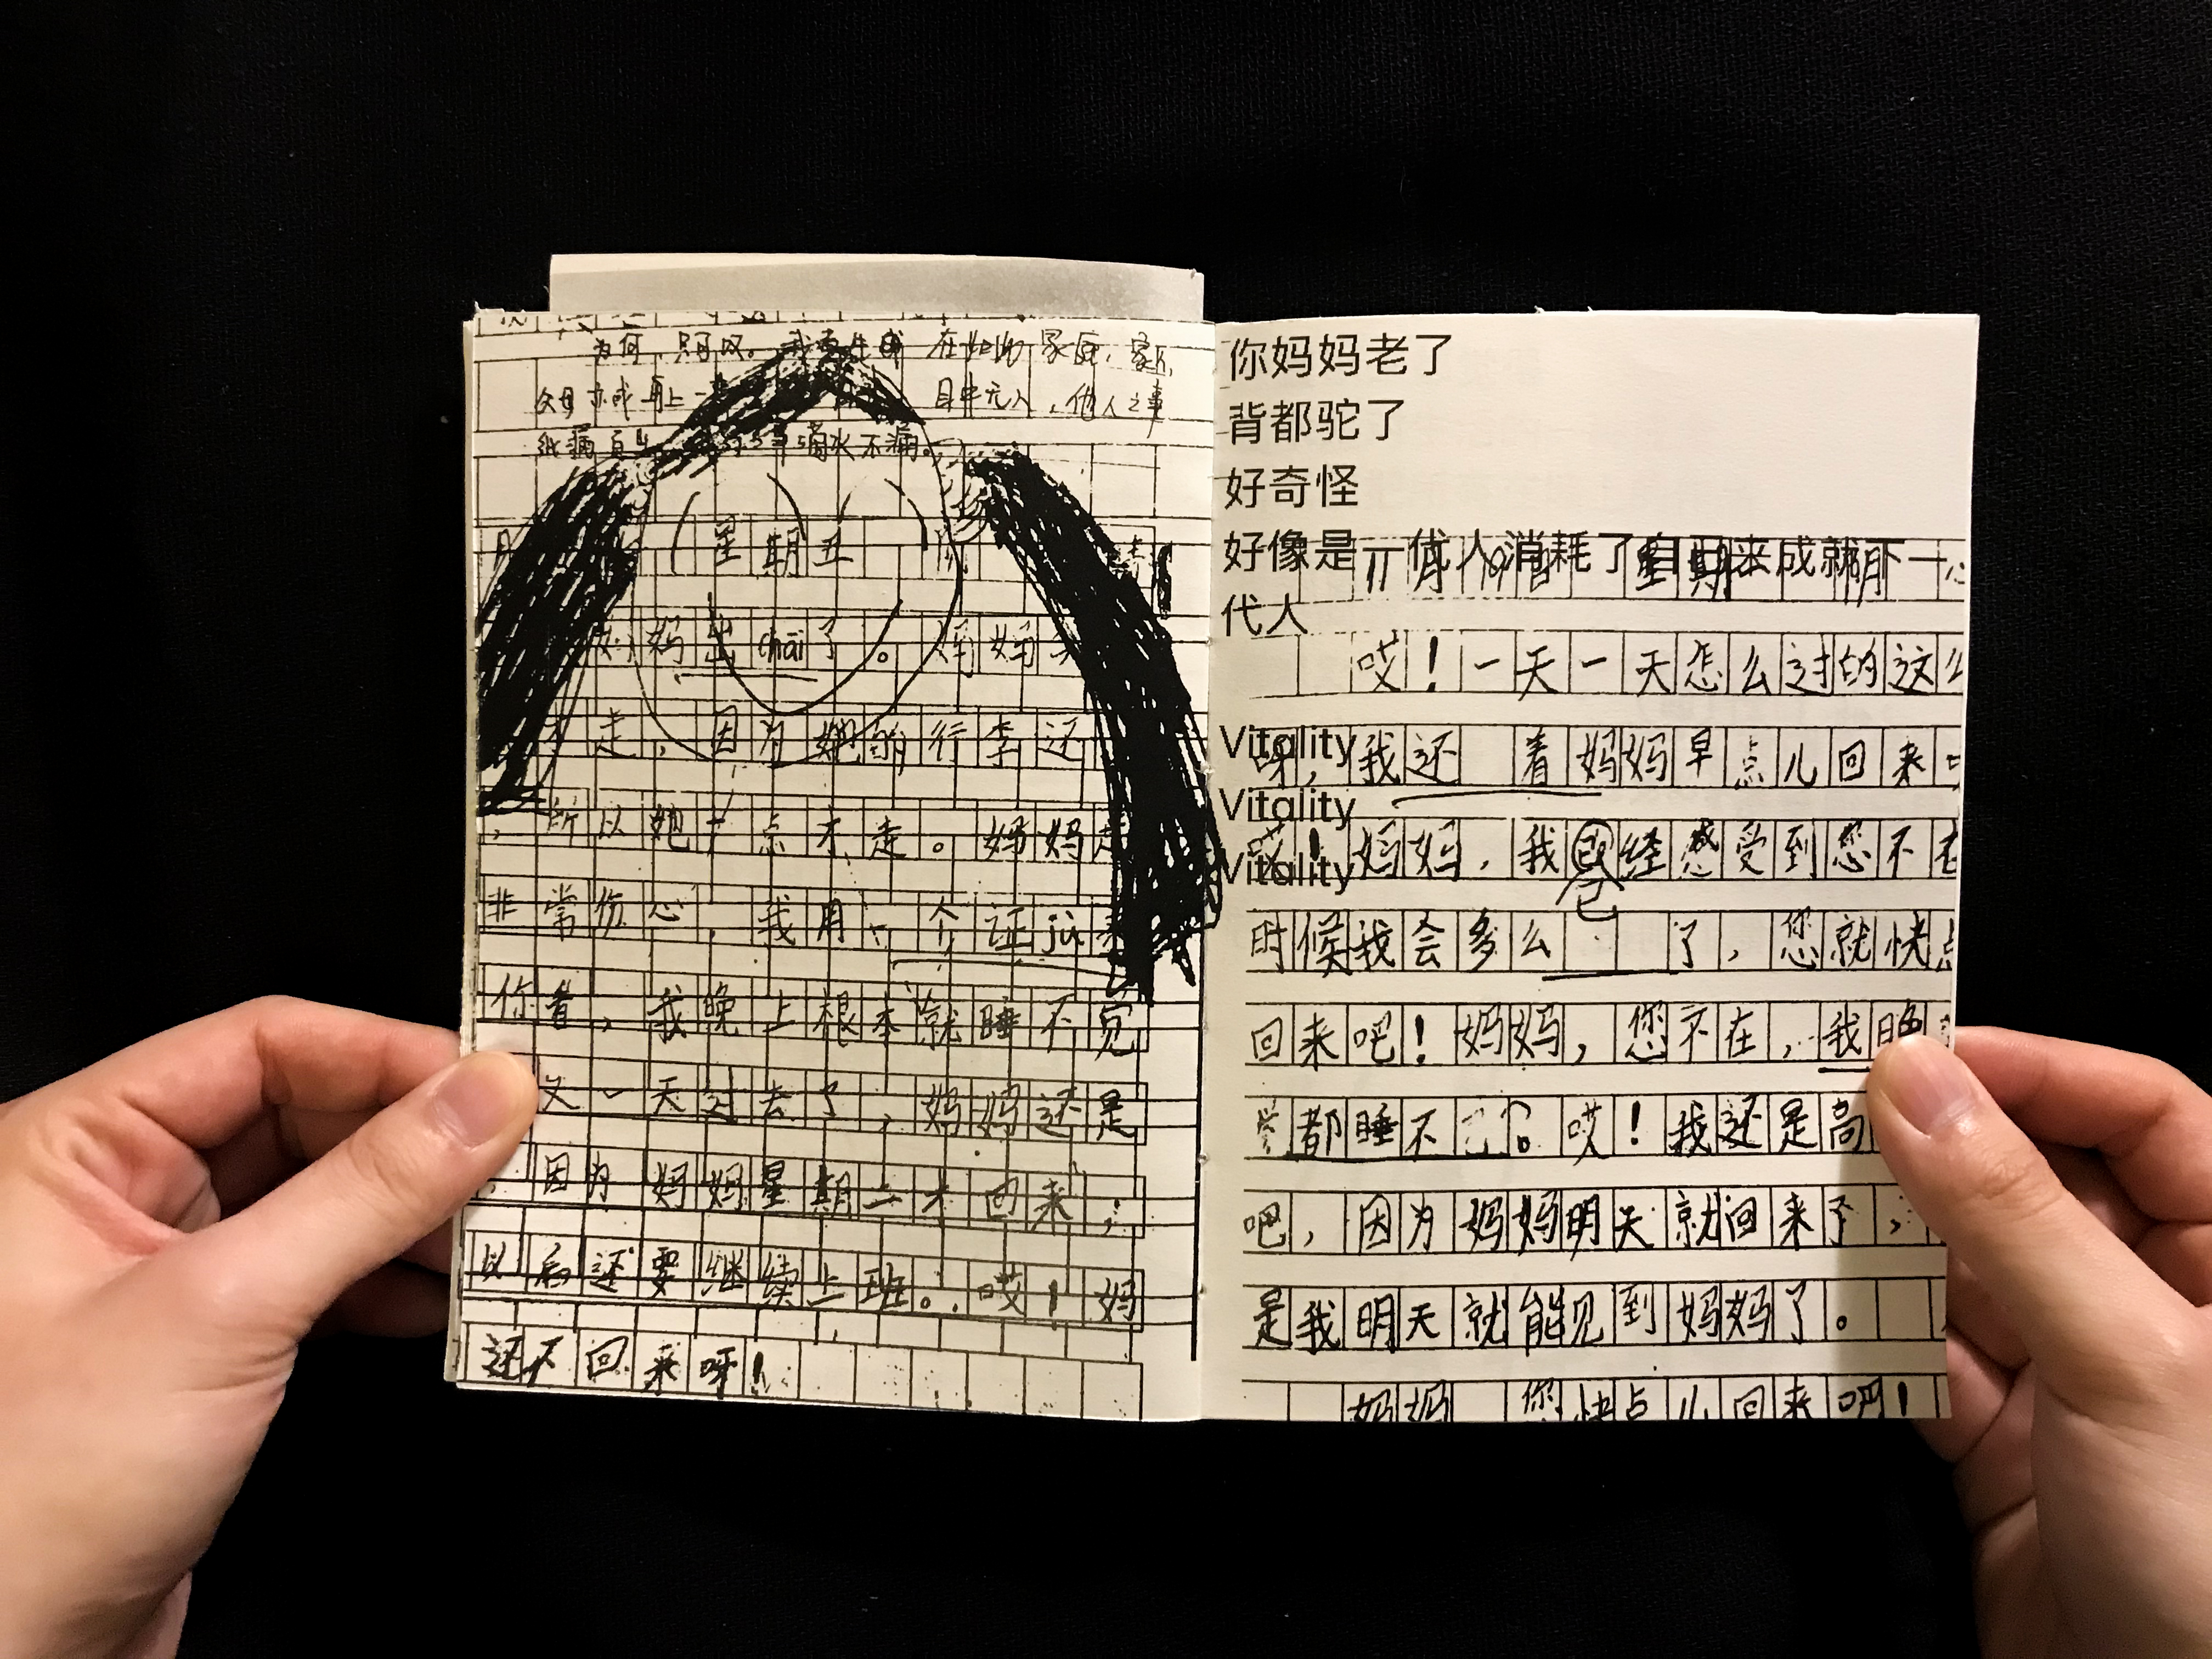 为何，只可叹。我要生 在如此家庭，家
父母亦或再上一 目中无人，他人之事
纰漏百出 事滴水不漏。
月 星期五 阴
妈妈出chāi了。妈妈
才走，因为她的行李还
，所以她 点才走。妈妈走
非常伤心，我用一个证jù来
你看，我晚上根本就睡不觉
又一天过去了，妈妈还是
，因为妈妈星期二才回来，
以后还要继续上班。哎！妈
还不回来呀！
你妈妈老了
背都驼了
好奇怪
好像是一代人消耗了自己来成就下一
代人
月 日 星期 阴
哎！一天一天怎么过的这么
呀，我还 着妈妈早点儿回来
Vitality
Vitality
Vitality
哎！妈妈，我已经感受到您不在
时候我会多么 了，您就快点
回来吧！妈妈，您不在，我晚
都睡不 。哎！我还是高
吧，因为妈妈明天就回来了，
是我明天就能见到妈妈了。
妈妈 您快点儿回来吧！